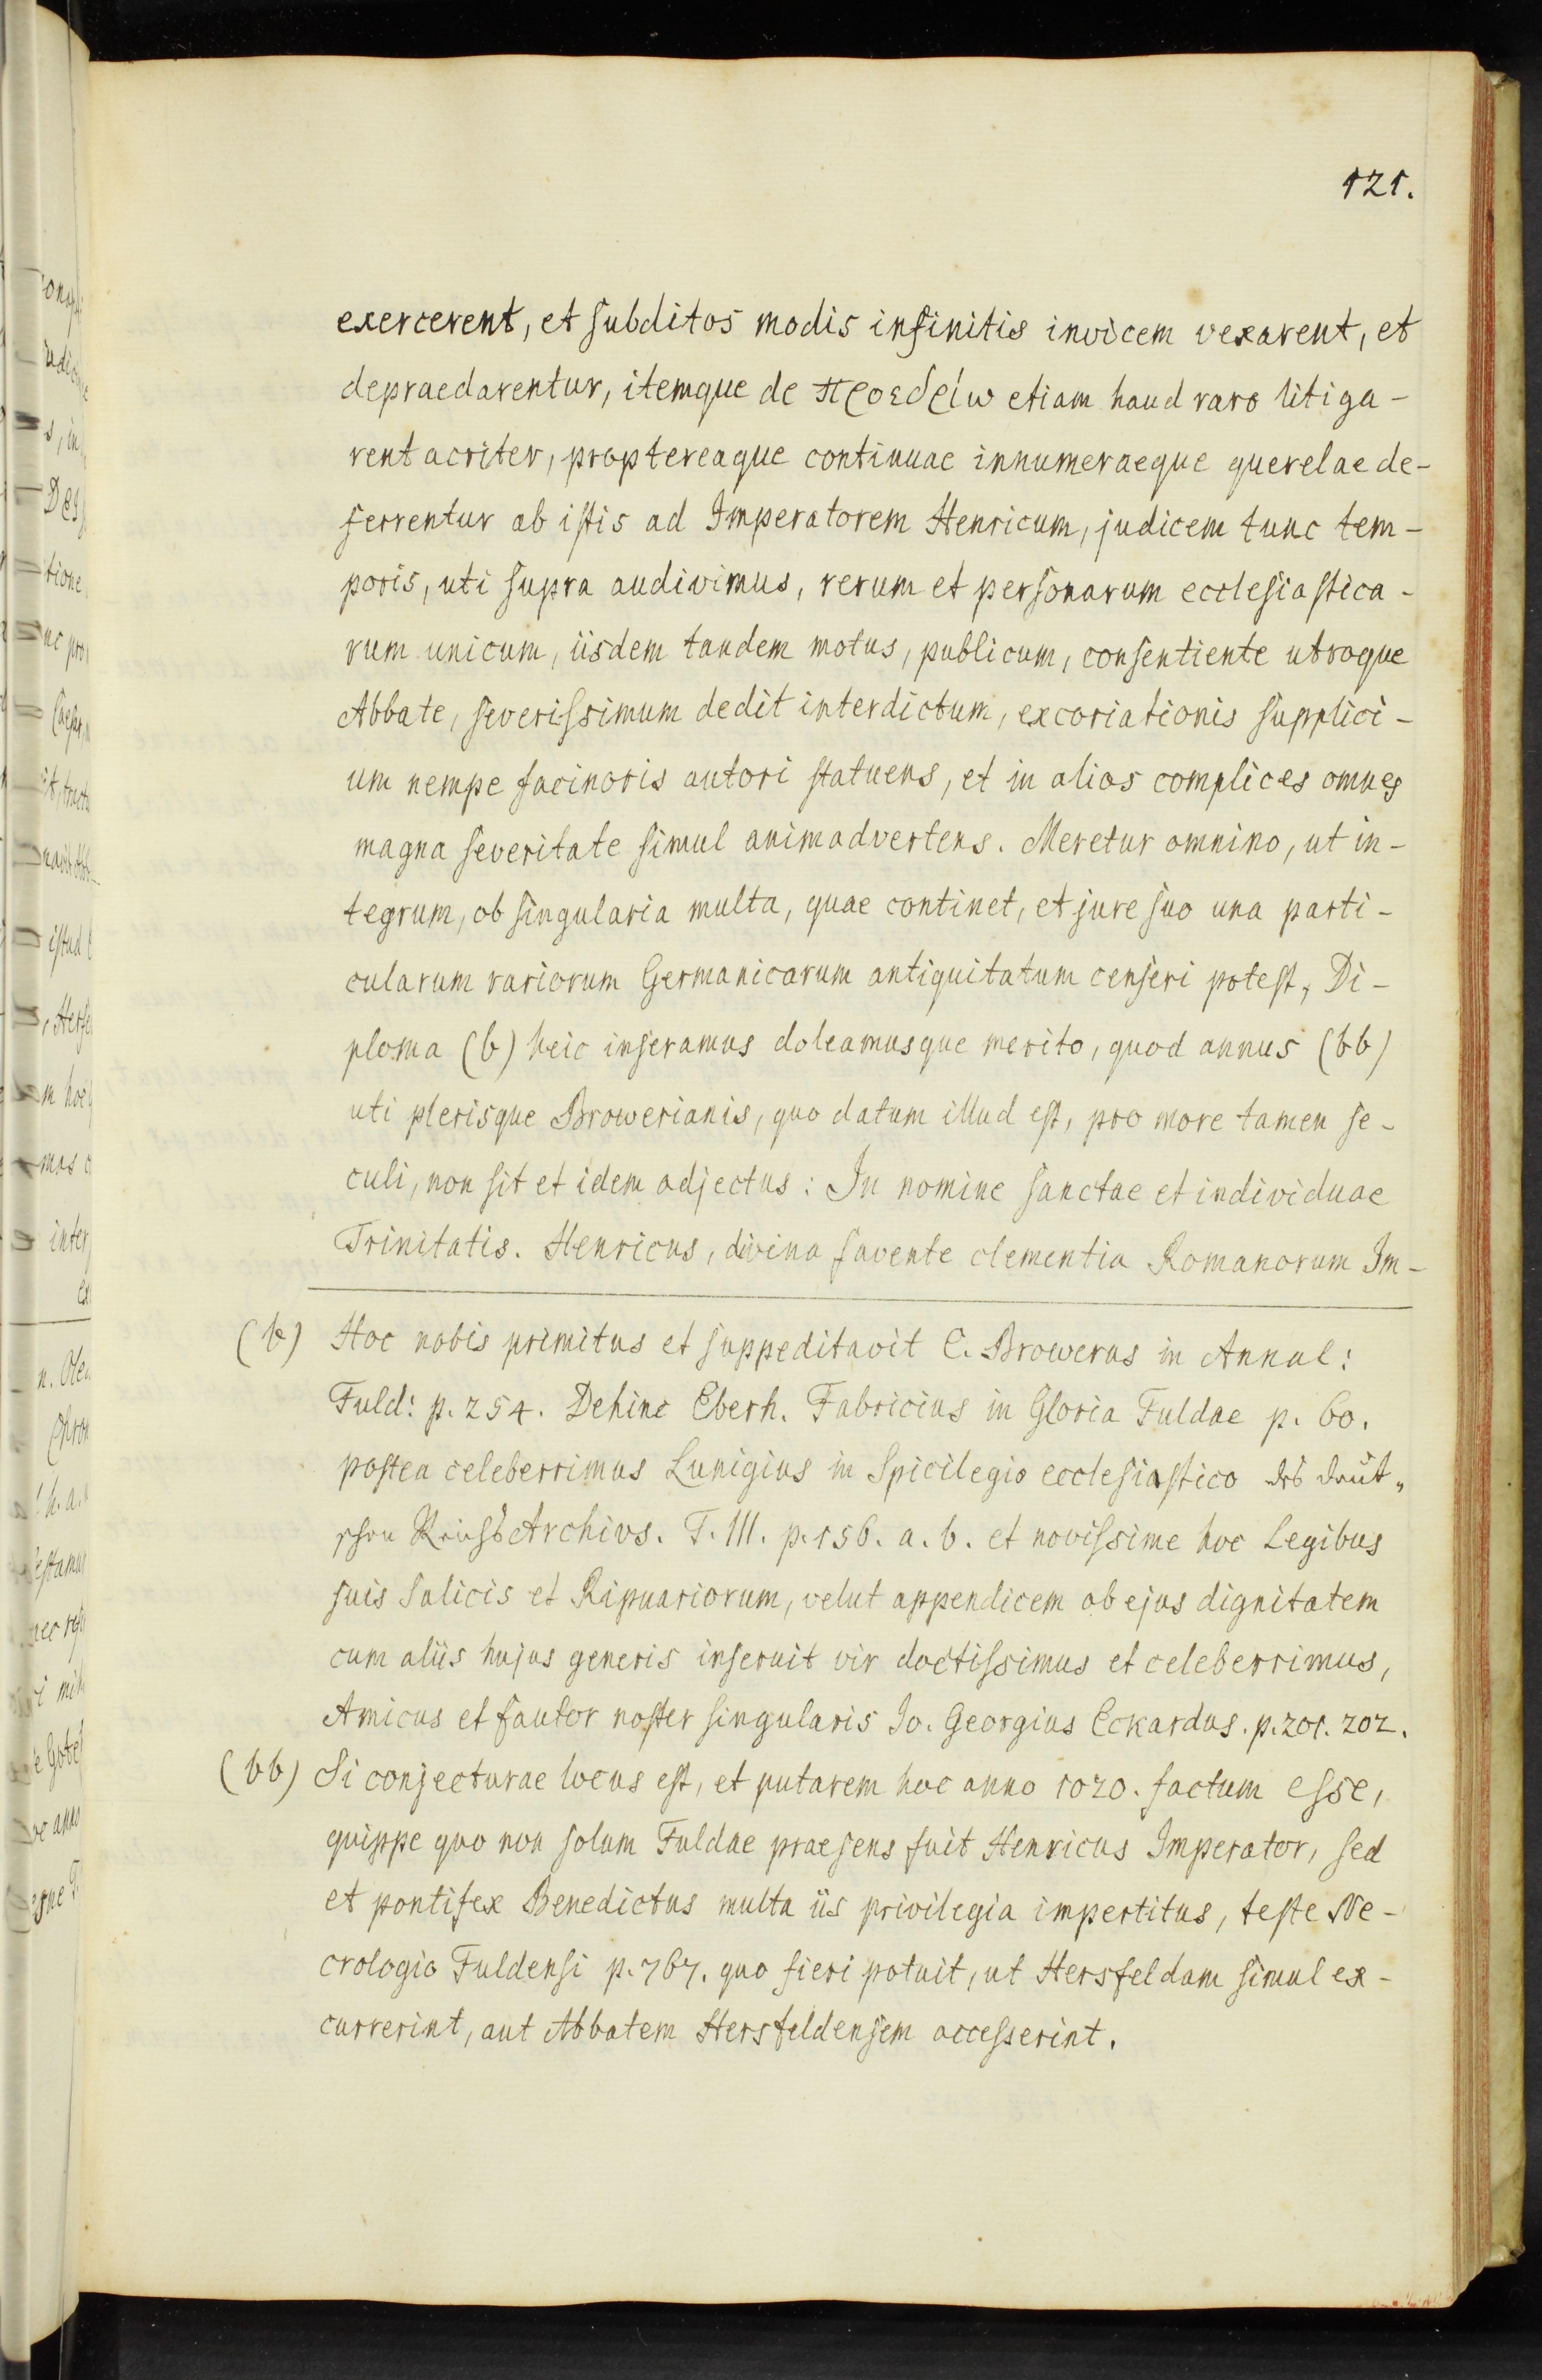 121.
exercerent, et subditos modis infinitis invicem vexarent, et
depraedarentur, itemque de προεδρίω etiam haud raro litiga-
rent acriter, proptereaque continuae innumeraeque querelae de-
ferrentur ab istis ad Imperatorem Henricum, judicem tunc tem-
poris, uti supra audivimus, rerum et personarum ecclesiastica-
rum unicum, iisdem tandem motus, publicum, consentiente utroque
Abbate, severissimum dedit interdictum, excoriationis supplici-
um nempe facinoris autori statuens, et in alios complices omnes
magna severitate simul animadvertens. Meretur omnino, ut in-
tegrum, ob singularia multa, quae continet, et jure suo una parti-
cularum rariorum Germanicarum antiquitatum censeri potest, Di-
ploma (b) heic inseramus doleamusque merito, quod annus (bb)
uti plerisque Browerianis, quo datum illud est, pro more tamen se-
culi, non sit et idem adjectus: In nomine sanctae et individuae
Trinitatis. Henricus, divina favente clementia Romanorum Im-
(b) Hoc nobis primitus et suppeditavit C. Browerus in Annal:
Fuld: p. 254. Dehinc Eberh. Fabricius in Gloria Fuldae p. 60.
postea celeberrimus Lunigius in Spicilegio ecclesiastico des Deut-
schen Reichs Archivs. T. III. p. 156. a. b. et novissime hoc Legibus
suis Salicis et Ripuariorum, velut appendicem ob ejus dignitatem
cum aliis hujus generis inseruit vir doctissimus et celeberrimus,
Amicus et fautor noster singularis Jo. Georgius Eckardus. p. 201. 202.
(bb) Si conjecturae locus est, et putarem hoc anno 1020. factum esse,
quippe quo non solum Fuldae praesens fuit Henricus Imperator, sed
et pontifex Benedictus multa iis privilegia impertitus, teste Ne-
crologio Fuldensi p. 767. quo fieri potuit, ut Hersfeldam simul ex-
currerint, aut Abbatem Hersfeldensem accesserint.